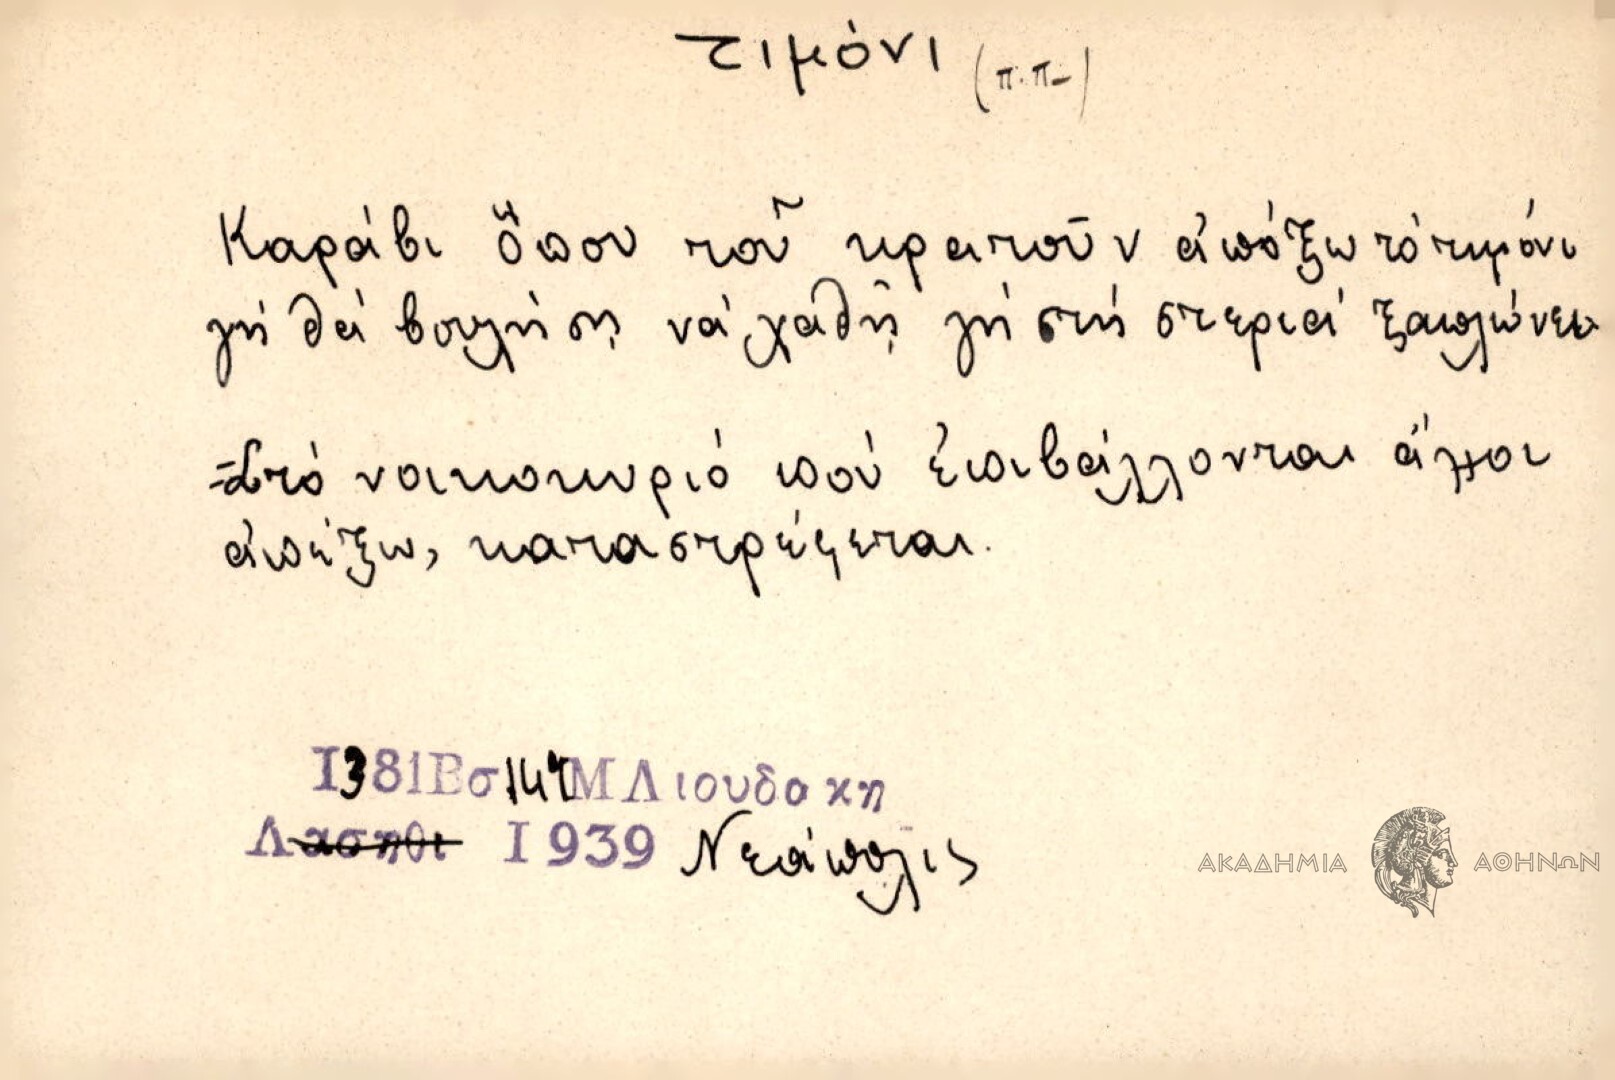 τιμόνι (π.π.)
Καράβι ὅπου τοῦ κρατοῦν ἀπόξω τὸ τιμόνι
γή θά βουλήσῃ νά χαθῇ γή στή στεριά ξαπλώνει
=Στό νοικοκυριό πού ἐπιβάλλονται ἄλλοι
ἀπέξω, καταστρέφεται.
1381Βσ144 Μ Λιουδακη
Λασηθι 1939 Νεάπολις
ΑΚΑΔΗΜΙΑ ΑΘΗΝΩΝ